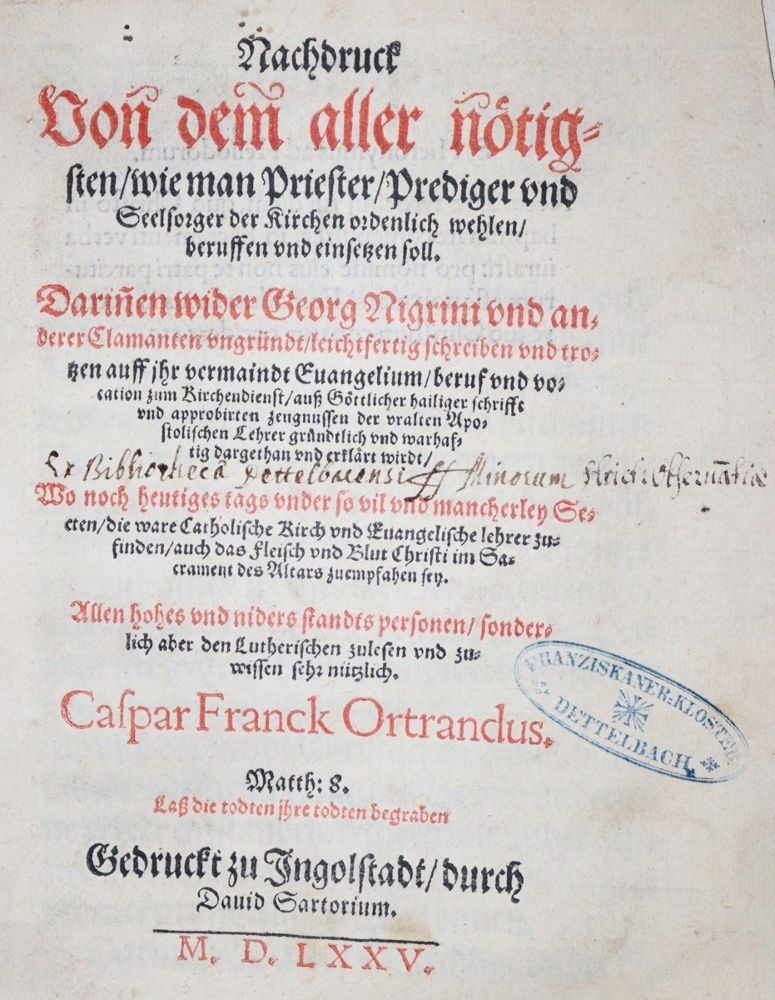 Nachdruck
Von̄ dem̄ aller n̄ötig-
sten/wie man Priester/Prediger vnd
Seelsorger der Kirchen ordenlich wehlen/
beruffen vnd einsetzen soll.
Dariñen wider Georg Nigrini vnd an-
derer Clamanten vngründt/leichtfertig schreiben vnd tro-
tzen auff jhr vermaindt Euangelium/beruf vnd vo-
cation zum Kirchendienst/auß Göttlicher hailiger schrifft
vnd approbirten zeugnussen der vralten Apo-
stolischen Lehrer gründtlich vnd warhaf-
tig dargethan vnd erklärt wirdt/
Ex Bibliothecâ Dettelbacensi ff Minorum
Wo noch heutiges tags vnder so vil vnd mancherley Se-
cten/die ware Catholische Kirch vnd Euangelische lehrer zu-
finden/auch das Fleisch vnd Blut Christi im Sa-
crament des Altars zuempfahen sey.
Allen hohes vnd niders standts personen/sonder-
lich aber den Lutherischen zulesen vnd zu-
wissen sehr nützlich.
FRANZISKANER-KLOSTER
DETTELBACH
Caspar Franck Ortrandus.
Matth: 8.
Laß die todten jhre todten begraben
Gedruckt zu Ingolstadt/durch
Dauid Sartorium.
M. D. LXXV.